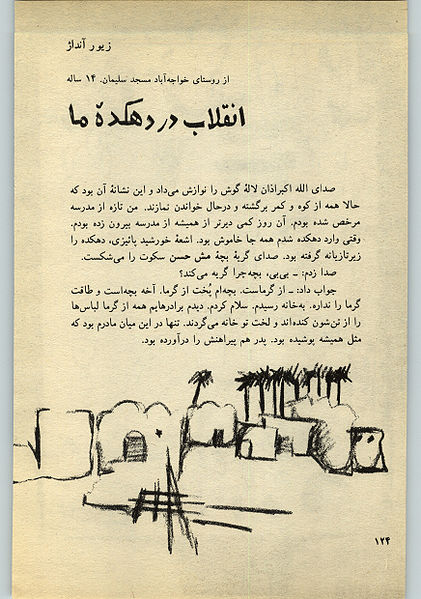 زیور آنداژ
از روستای خواجه‌آباد مسجد سلیمان. ۱۴ ساله
انقلاب در دهکدهٔ ما
صدای الله اکبراذان لالهٔ گوش را نوازش می‌داد و این نشانهٔ آن بود که
حالا همه از کوه و کمر برگشته و درحال خواندن نمازند. من تازه از مدرسه
مرخص شده بودم. آن روز کمی دیرتر از همیشه از مدرسه بیرون زده بودم.
وقتی وارد دهکده شدم همه جا خاموش بود. اشعهٔ خورشید پائیزی، دهکده را
زیرتازیانه گرفته بود. صدای گریهٔ بچهٔ مش حسن سکوت را می‌شکست.
صدا زدم: ــ بی‌بی، بچه‌چرا گریه می‌کند؟
جواب داد: ــ از گرماست. بچه‌ام پُخت از گرما. آخه بچه‌است و طاقت
گرما را نداره. به‌خانه رسیدم. سلام کردم. دیدم برادرهایم همه از گرما لباس‌ها
را از تن‌شون کنده‌اند و لخت تو خانه می‌گردند. تنها در این میان مادرم بود که
مثل همیشه پوشیده بود. پدر هم پیراهنش را درآورده بود.
۱۲۴